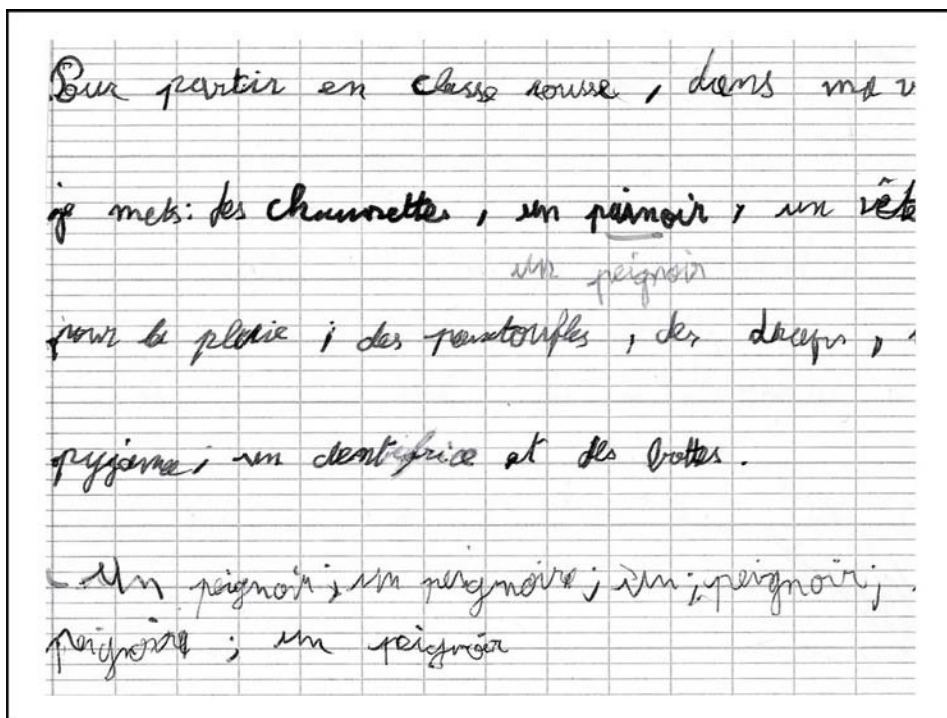 Pour partir en classe rousse, dans ma v
je mets: des chaussettes, un painoir, un vête
un peignoir
pour la pluie, des pantoufles, des draps,
pyjama, un dentifrice et des bottes.
- Un peignoir; un peignoire; un; peignoir;
peignoire; un peignoir